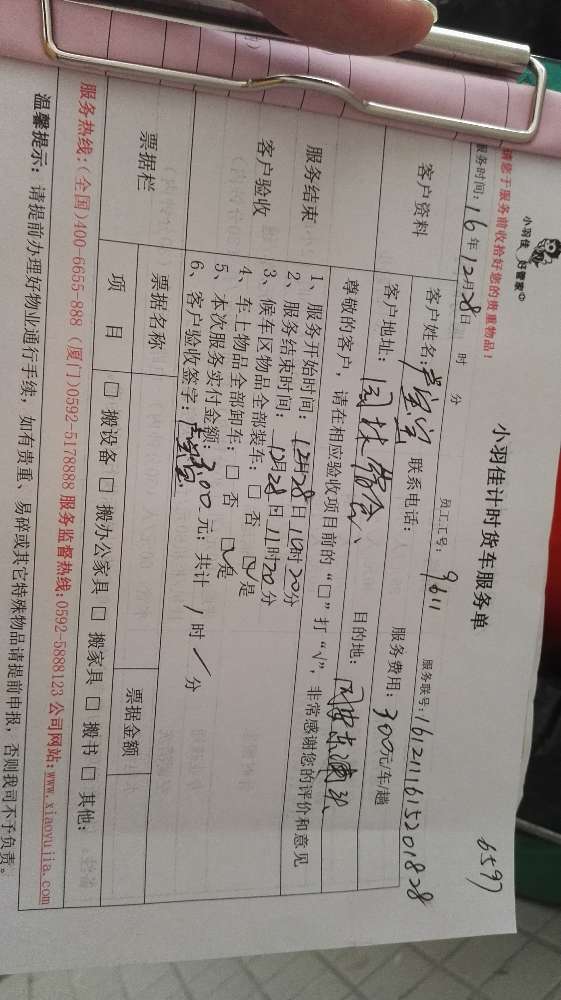 小羽佳 好管家
请您于服务前收拾好您的贵重物品！
小羽佳计时货车服务单
6597
服务时间: 16年12月28日 时 分 员工工号: 9611 服务联号: 1612111615201828
客户资料
客户姓名: 联系电话: 服务费用: 300元/车/趟
客户地址: 目的地:
尊敬的客户，请在相应验收项目前的“□”打“√”，非常感谢您的评价和意见
服务结束
客户验收
1、服务开始时间: 12月28日10时20分
2、服务结束时间: 12月28日11时20分
3、候车区物品全部装车: □ 否 ☑ 是
4、车上物品全部卸车: □ 否 ☑ 是
5、本次服务实付金额: 300元; 共计 1时 / 分
6、客户验收签字:
票据栏
票据名称 票据金额
项 目 □ 搬设备 □ 搬办公家具 □ 搬家具 □ 搬书 □ 其他:
服务热线: (全国)400-6655-888 (厦门)0592-5178888 服务监督热线: 0592-5888123 公司网站: www.xiaoyujia.com
温馨提示: 请提前办理好物业通行手续，如有贵重、易碎或其它特殊物品请提前申报，否则我司不予负责。